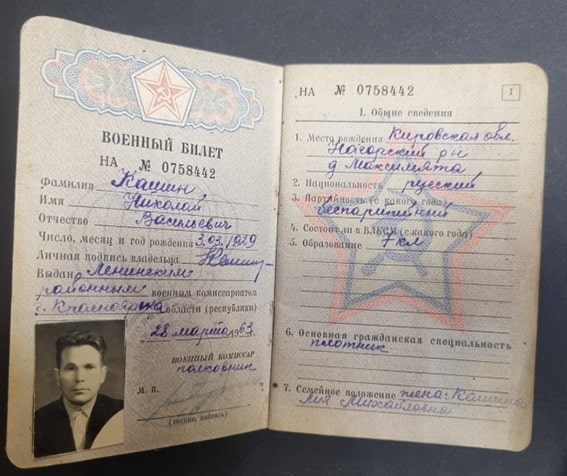 ВОЕННЫЙ БИЛЕТ
НА № 0758442
Фамилия Кашин
Имя Николай
Отчество Васильевич
Число, месяц и год рождения 3.03.1929
Личная подпись владельца
Выдан Ленинским
районным военным комиссариатом
г. Красноярска области (республики)
„28 марта 1963 г.
ВОЕННЫЙ КОМИССАР
полковник
М. П.
(звание, подпись)
НА № 0758442
1
I. Общие сведения
1. Место рождения Кировская обл.
Нагорский р-н
д Максимята
2. Национальность русский
3. Партийность (с какого года)
беспартийный
4. Состоит ли в ВЛКСМ (с какого года)
5. Образование 7 кл
6. Основная гражданская специальность
плотник
7. Семейное положение жена-Кашина
Лия Михайловна